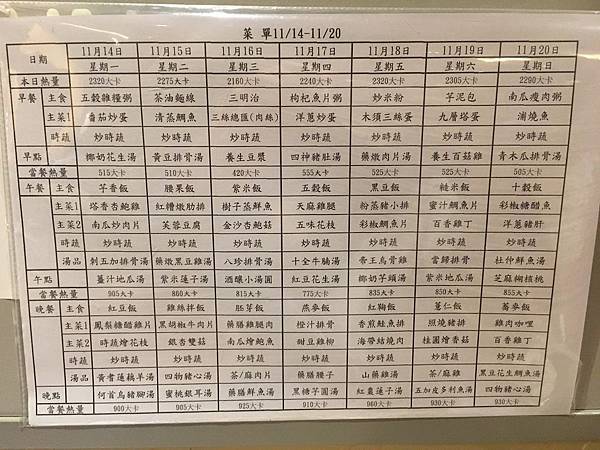 菜 單11/14-11/20
日期 11月14日 11月15日 11月16日 11月17日 11月18日 11月19日 11月20日
星期一 星期二 星期三 星期四 星期五 星期六 星期日
本日熱量 2320大卡 2275大卡 2160大卡 2240大卡 2320大卡 2305大卡 2290大卡
早餐 主食 五穀雜糧粥 茶油麵線 三明治 枸杞魚片粥 炒米粉 芋泥包 南瓜瘦肉粥
主菜1 番茄炒蛋 清蒸鯛魚 三絲總匯(肉絲) 洋蔥炒蛋 木須三絲蛋 九層塔蛋 滷燒魚
時蔬 炒時蔬 炒時蔬 炒時蔬 炒時蔬 炒時蔬 炒時蔬 炒時蔬
早點 椰奶花生湯 黃豆排骨湯 養生豆漿 四神豬肚湯 藥燉肉片湯 養生百菇雞 青木瓜排骨湯
當餐熱量 515大卡 510大卡 420大卡 555大卡 525大卡 525大卡 505大卡
午餐 主食 芋香飯 腰果飯 紫米飯 五穀飯 黑豆飯 糙米飯 十穀飯
主菜1 塔香杏鮑雞 紅糟燉肋排 樹子蒸鮮魚 天麻雞腿 粉蒸豬小排 蜜汁鯛魚片 彩椒糖醋魚
主菜2 南瓜炒肉片 芙蓉豆腐 金沙杏鮑菇 五味花枝 彩椒鯛魚片 百香雞丁 洋蔥豬肝
時蔬 炒時蔬 炒時蔬 炒時蔬 炒時蔬 炒時蔬 炒時蔬 炒時蔬
湯品 刺五加排骨湯 藥燉黑豆雞湯 八珍排骨湯 十全牛腩湯 帝王烏骨雞 當歸排骨 杜仲鮮魚湯
午點 薑汁地瓜湯 紫米蓮子湯 酒釀小湯圓 紅豆花生湯 椰奶芋頭湯 紫米地瓜湯 芝麻糊核桃
當餐熱量 905大卡 860大卡 815大卡 775大卡 835大卡 850大卡 855大卡
晚餐 主食 紅豆飯 雞絲拌飯 胚芽飯 燕麥飯 紅麴飯 薏仁飯 蕎麥飯
主菜1 鳳梨糖醋雞片 黑胡椒牛肉片 藥膳雞腿肉 橙汁排骨 香煎鮭魚排 照燒豬排 雞肉咖哩
主菜2 時蔬燴花枝 銀杏雙菇 南瓜燴鮑魚 甜豆雞柳 海帶結燒肉 桂圓燴香菇 百香雞丁
時蔬 炒時蔬 炒時蔬 炒時蔬 炒時蔬 炒時蔬 炒時蔬 炒時蔬
湯品 黃耆蓮藕羊湯 四物豬心湯 茶/麻肉片 藥膳腰子 山藥雞湯 茶/麻雞 黑豆花生鯛魚湯
晚點 何首烏豬腳湯 蜜桃銀耳湯 藥膳鮮魚湯 黑糖芋圓湯 紅棗蓮子湯 五加皮多利魚湯 四物豬心湯
當餐熱量 900大卡 905大卡 925大卡 910大卡 960大卡 930大卡 930大卡